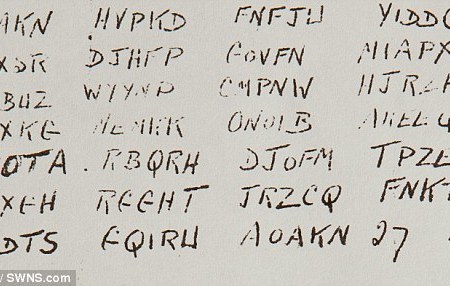 AKN HVPKD FNFJW YIDDC
XSR DJHFP GOVFN MIAPX
BUZ WYYNP CMPNW HJRZH
XKG MEMKK ONOIB AKEEQ
OTA RBQRH DJOFM TPZE
XGH RGGHT JRZCQ FNKT
DTS GQIRW AOAKN 27
/ SWNS.com